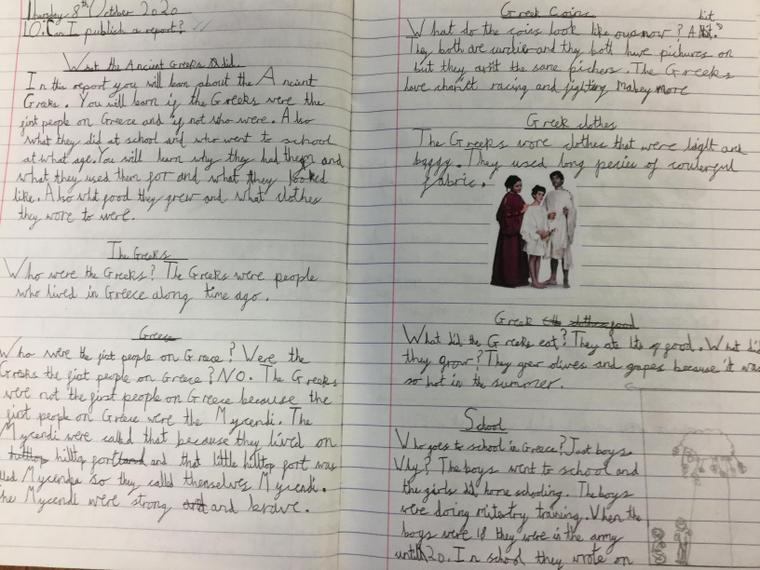 Thursday 8th October 2020
LO: Can I publish a report?
What the Ancient Greeks did.
In the report you will learn about the Ancient
Greeks. You will learn if the Greeks were the
first people on Greece and if not who were. Also
what they did at school and who went to school
at what age. You will learn why they had them and
what they used them for and what they looked
like. Also what food they grew and what clothes
they wore to were.
The Greeks
Who were the Greeks? The Greeks were people
who lived in Greece along time ago.
Greece
Who were the first people on Greece? Were the
Greeks the first people on Greece? NO. The Greeks
were not the first people on Greece because the
first people on Greece were the Mycendi. The
Mycendi were called that because they lived on
hilltop fort and that little hilltop fort was
called Mycendea so they called themselves Mycendi.
The Mycendi were strong and brave.
Greek Coins
What do the coins look like our now? A bit.
They both are and they both have pichures on
but they aren't the same pichers. The Greeks
love chariot racing and fighting
Greek clothes
The Greeks wore clothes that were light and
baggy. They used long pecies of coulerful
fabric.
Greek food
What did the Greeks eat? They ate lots of food. What did
they grow? They grer olives and grapes because it was
so hot in the summer.
School
Who goes to school in Greece? Just boys.
Why? The boys went to school and
the girls did home schooling. The boys
were doing military training. When the
boys were 18 they were in the army
until 20. In school they wrote on